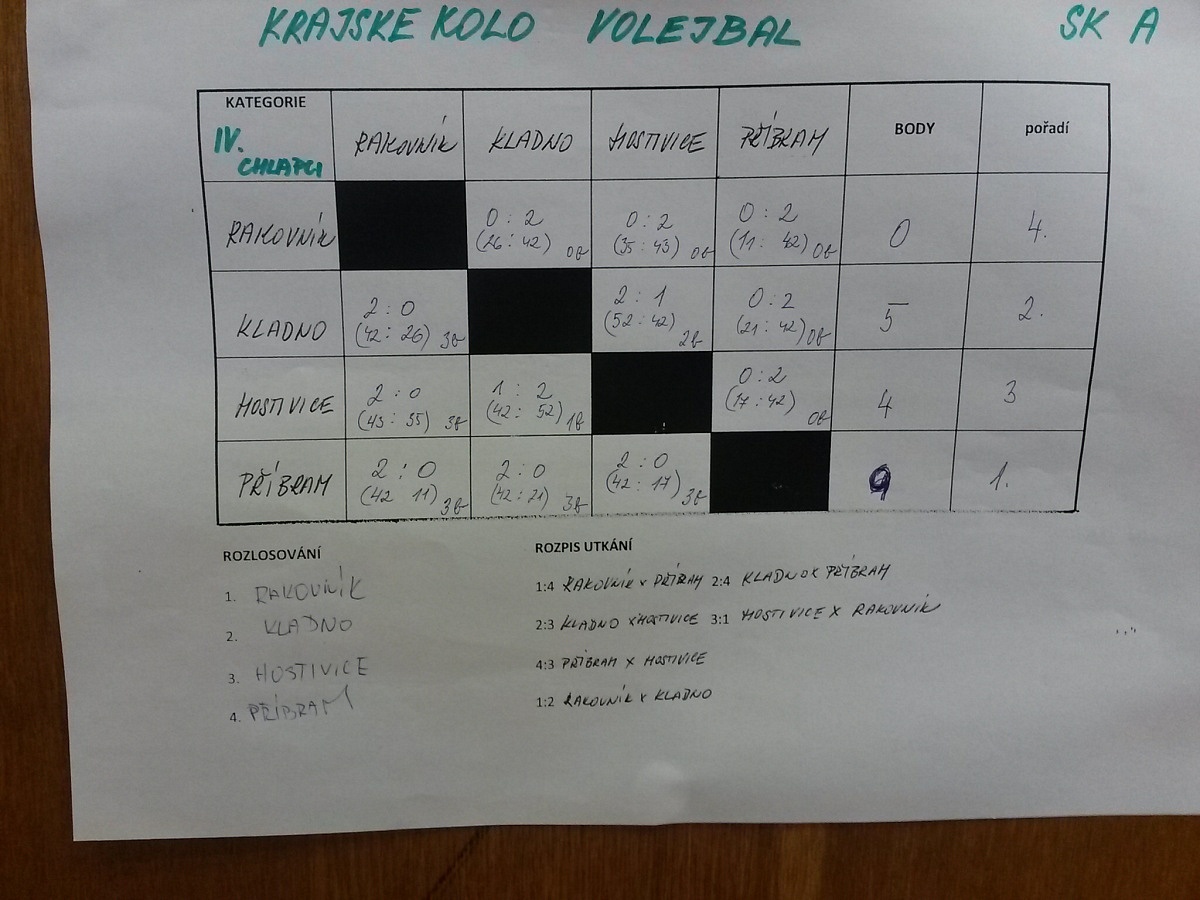 KRAJSKE KOLO VOLEJBAL SK A
KATEGORIE
IV. CHLAPCI RAKOVNÍK KLADNO HOSTIVICE PŘÍBRAM BODY pořadí
RAKOVNÍK 0:2 (26:42) 0b 0:2 (35:43) 0b 0:2 (11:42) 0b 0 4.
KLADNO 2:0 (42:26) 3b 2:1 (52:42) 2b 0:2 (21:42) 0b 5 2.
HOSTIVICE 2:0 (43:35) 3b 1:2 (42:52) 1b 0:2 (17:42) 0b 4 3
PŘÍBRAM 2:0 (42 11) 3b 2:0 (42:21) 3b 2:0 (42:17) 3b 9 1.
ROZLOSOVÁNÍ
1. RAKOVNÍK
2. KLADNO
3. HOSTIVICE
4. PŘÍBRAM
ROZPIS UTKÁNÍ
1:4 RAKOVNÍK x PŘÍBRAM 2:4 KLADNO x PŘÍBRAM
2:3 KLADNO x HOSTIVICE 3:1 HOSTIVICE X RAKOVNÍK
4:3 PŘÍBRAM X HOSTIVICE
1:2 RAKOVNÍK x KLADNO